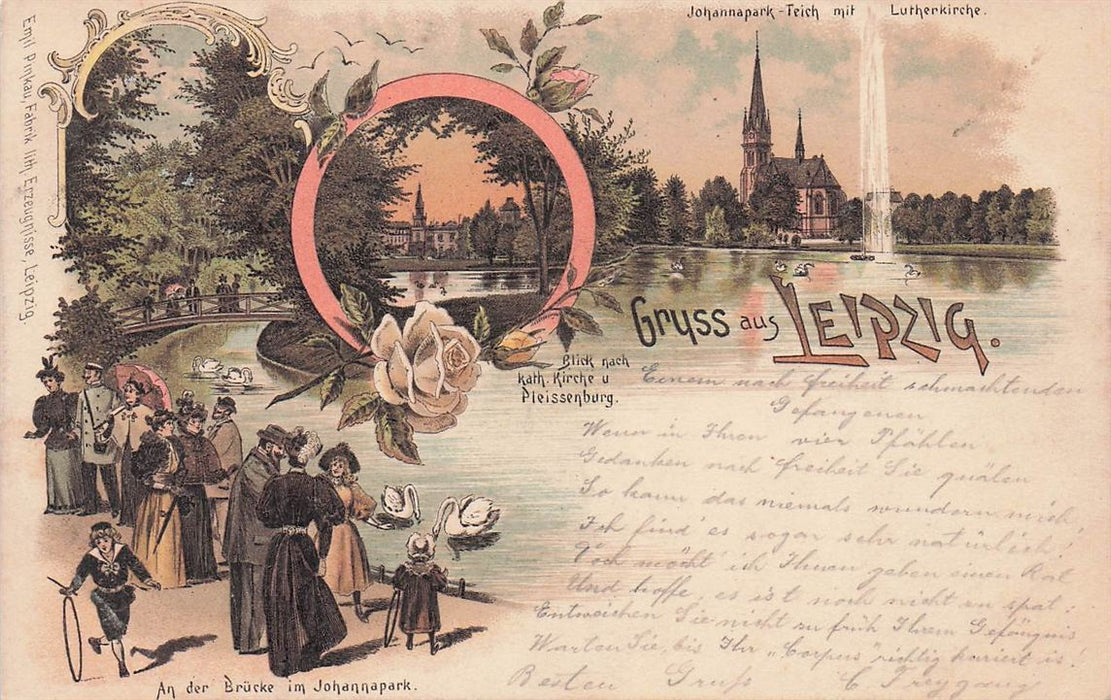 Johannapark-Teich mit Lutherkirche.
Emil Pinkau, Fabrik lith. Erzeugnisse, Leipzig.
Gruss aus LEIPZIG.
Blick nach
kath. Kirche u
Pleissenburg.
Einem nach Freiheit schmachtenden
Gefangenen
Wenn in Ihren vier Pfählen
Gedanken nach Freiheit Sie quälen
So kann das niemals wundern mich,
Ich find' es sogar sehr natürlich!
Doch möcht' ich Ihnen geben einen Rat
Und hoffe, es ist noch nicht zu spat:
Entweichen Sie nicht zu früh Ihrem Gefängnis
Warten Sie, bis Ihr „Corpus" richtig kuriert is!
Besten Gruß C.
An der Brücke im Johannapark.